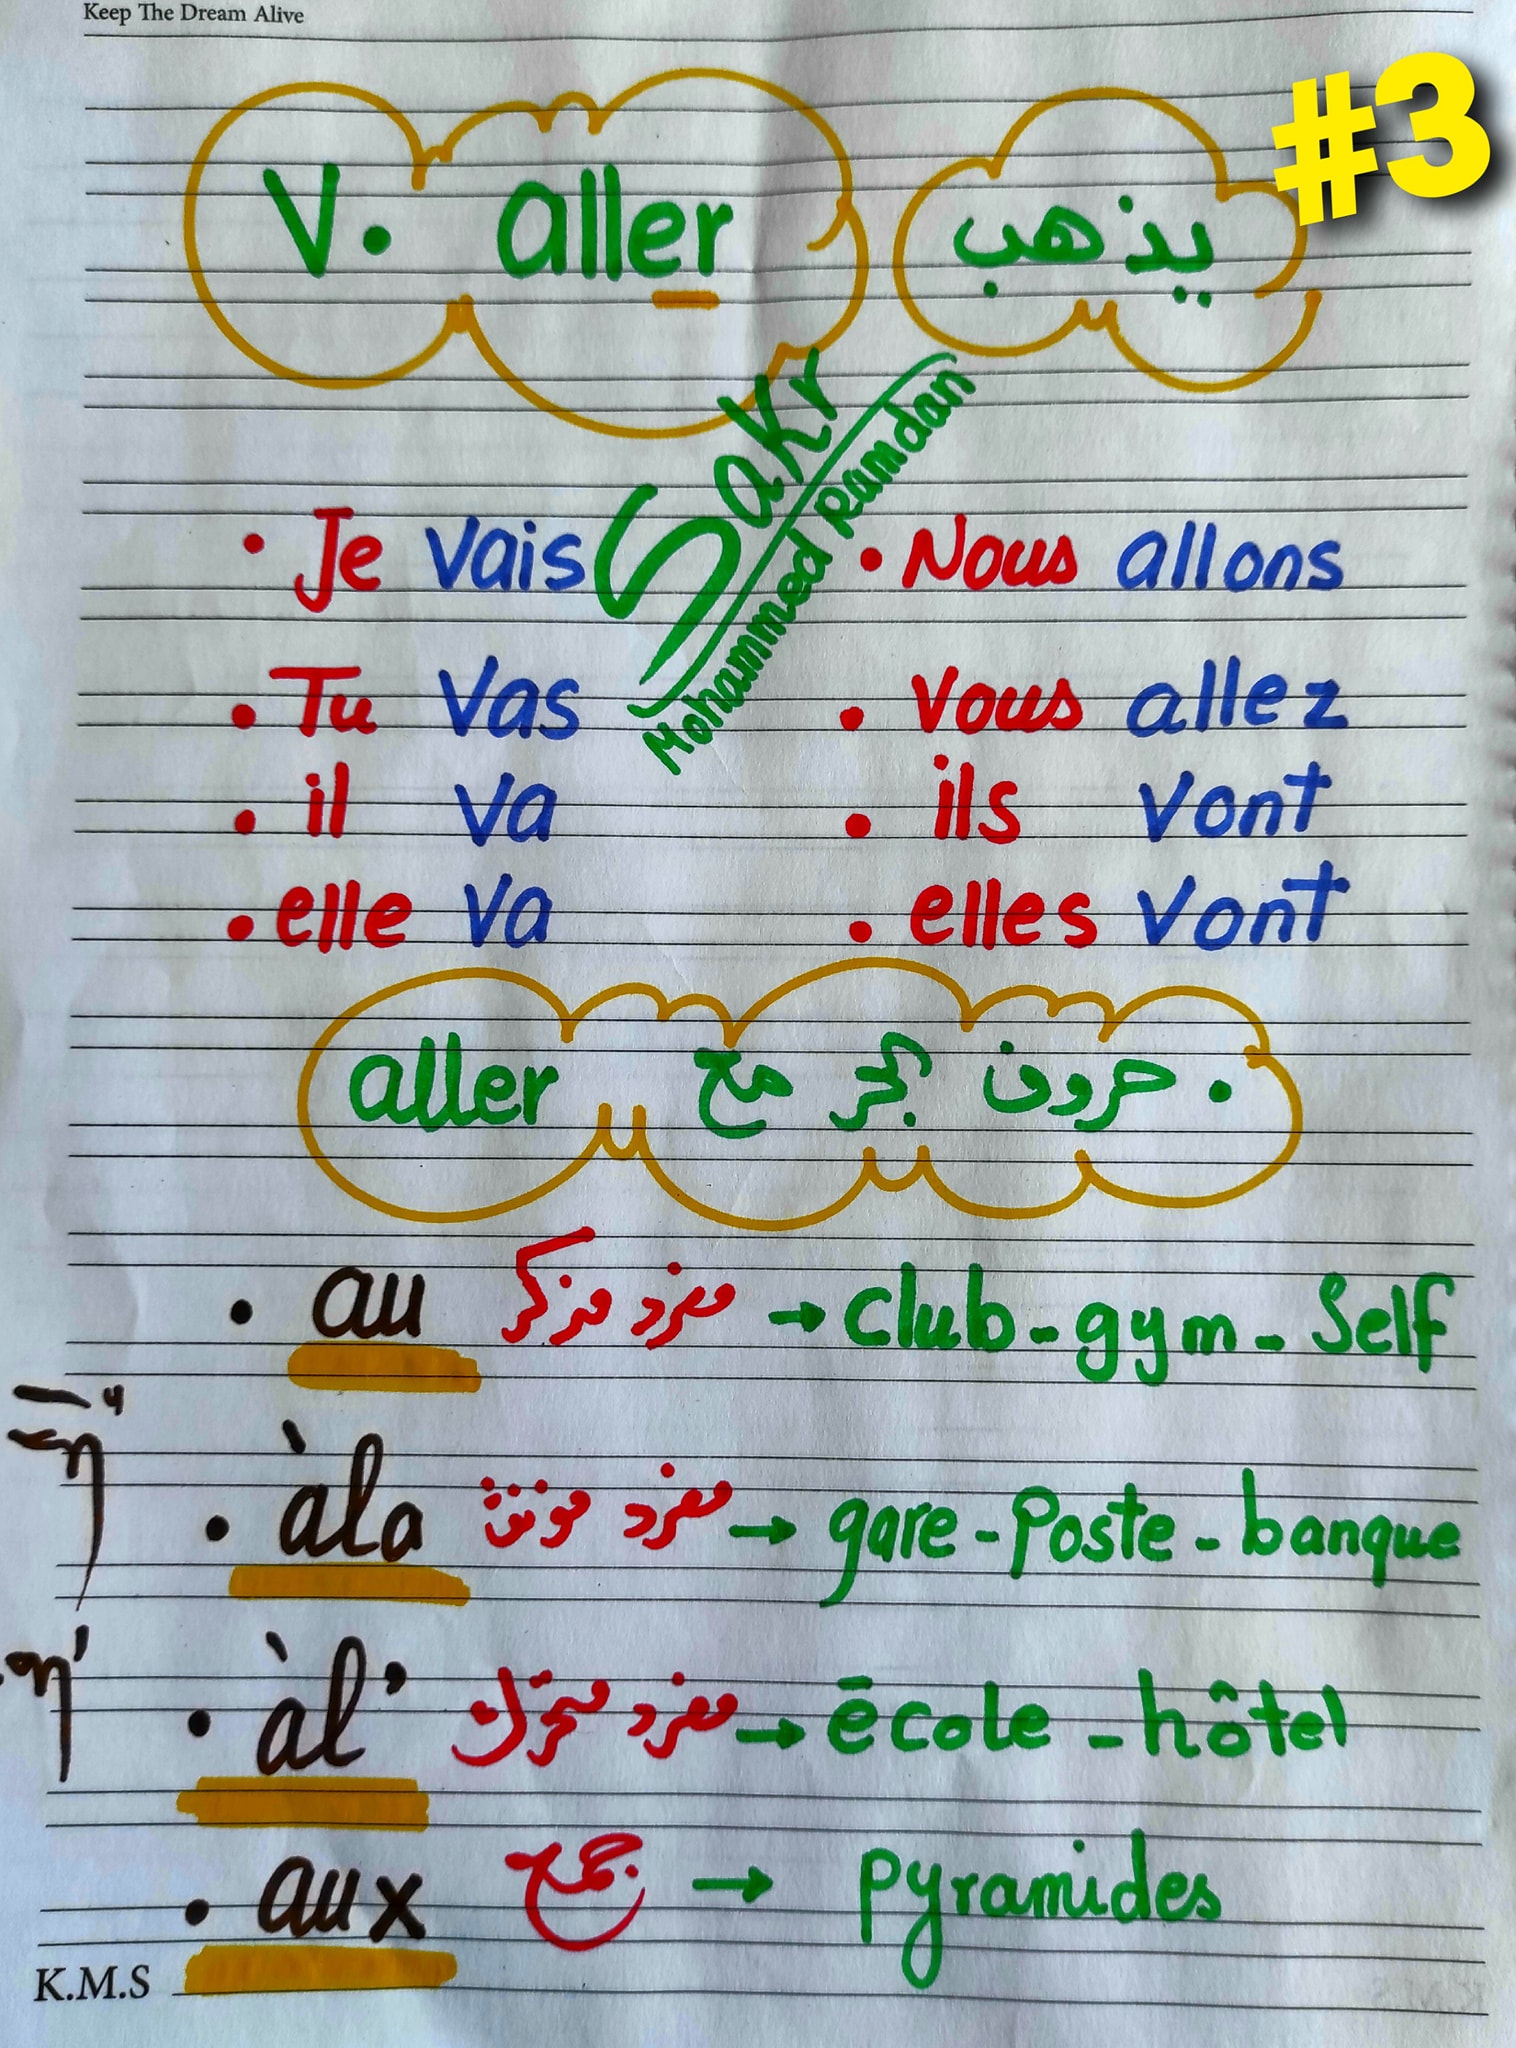 Keep The Dream Alive
#3
V. aller يذهب
Sakr
Mohammed Ramdan
• Je vais • Nous allons
• Tu vas • vous allez
• il va • ils vont
• elle va • elles vont
• حروف الجر مع aller
• au مفرد مذكر → club - gym - Self
• àla مفرد مؤنث → gare - Poste - banque
• àl' مفرد متحرك → école - hôtel
• aux جمع → pyramides
K.M.S